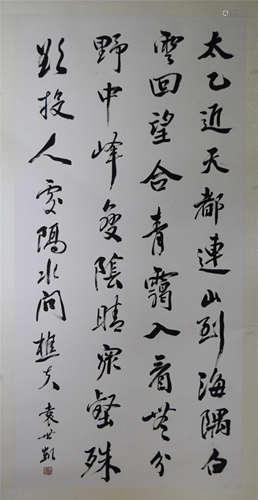 太乙近天都連山到海隅白
雲回望合青靄入看無分
野中峰變陰晴眾壑殊
欲投人處隔水問樵夫
袁世凱